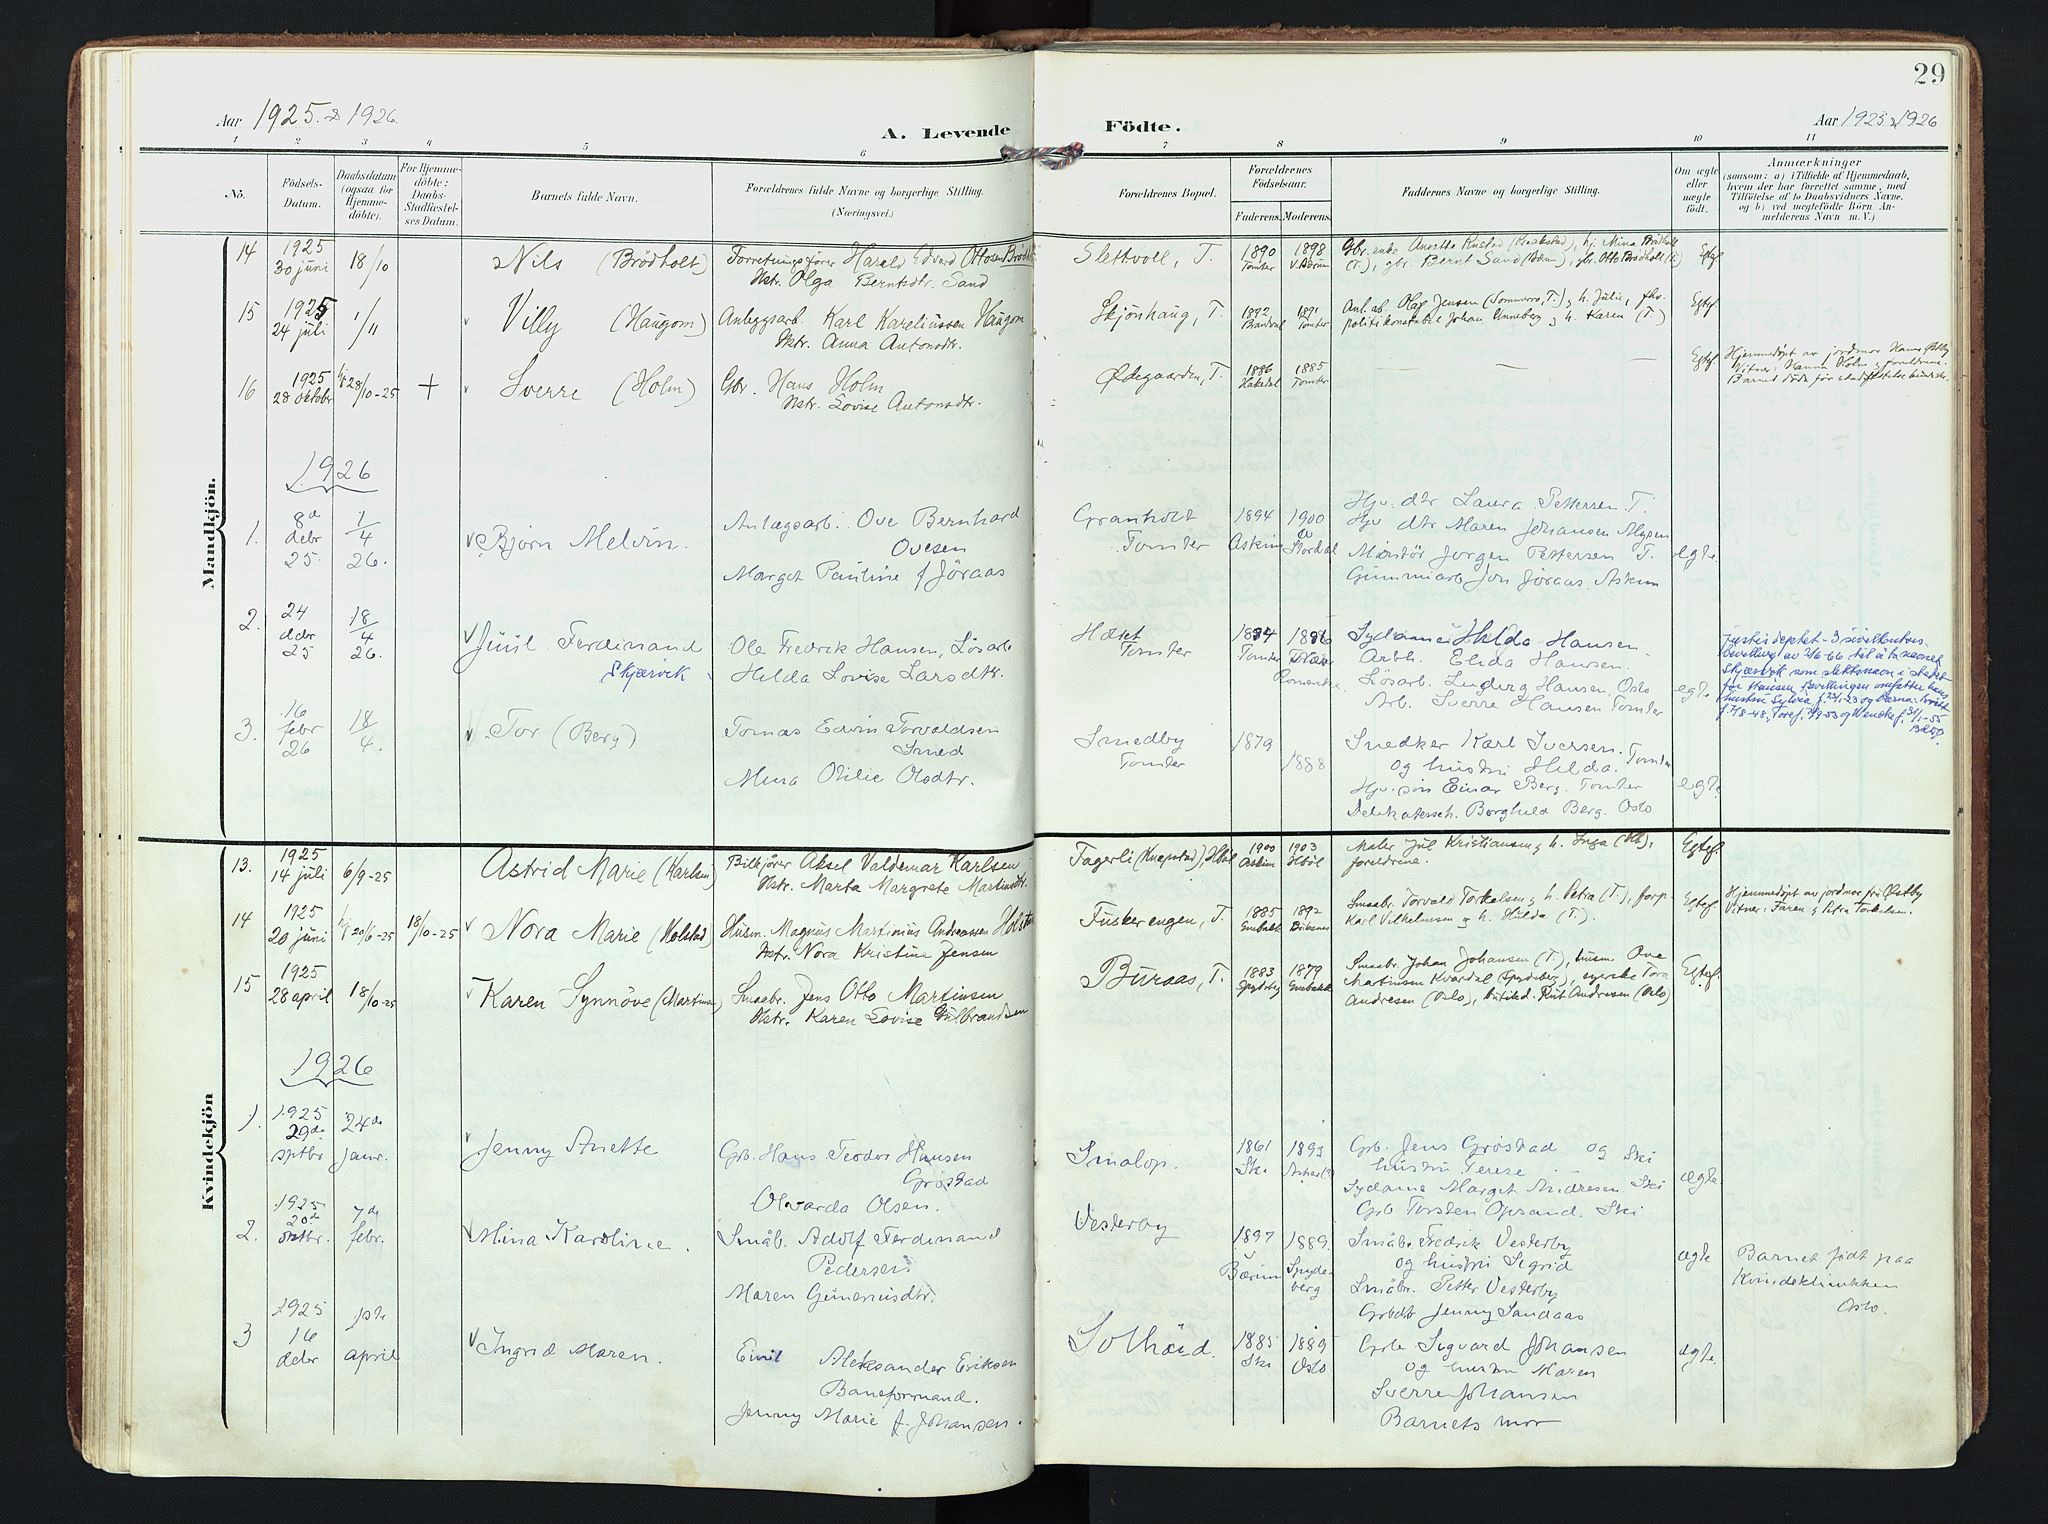 29
Aar 1925 & 1926.
A. Levende
Födte.
Aar 1925 & 1926
1 2 3 4 5 6 7 8 9 10 11
No.
Födsels-
Datum.
Daabsdatum
(ogsaa for
Hjemme-
döbte).
For Hjemme-
döbte:
Daabs-
Stadfæstel-
ses Datum.
Barnets fulde Navn.
Forældrenes fulde Navne og borgerlige Stilling.
(Næringsvei.)
Forældrenes Bopæl.
Forældrenes
Födselsaar.
Faderens. Moderens.
Faddernes Navne og borgerlige Stilling.
Om ægte
eller
uægte
født.
Anmærkninger
(saasom: a) i Tilfælde af Hjemmedaab,
hvem der har forrettet samme, med
Tilföielse af to Daabsvidners Navne.
og b) ved uægtefödte Börn An-
melderens Navn m. V.)
Mandkjön.
14
1925
30 juni
18/10
Nils (Brödholt)
Forretningsfører Harald Edvard Ottosen Brödholt
Hstr. Olga Berntsdtr. Sand
Slettvoll, T.
1890
Tomter
1898
Gbr. enke Anette Rustad (Kraakstad), hj. Mina Brödholt
(T.), gbr. Bernt Sand, gbr. Otto Brödholt (T.)
Egtef.
15
1925
24 juli
1/11
Villy (Haugom)
Anleggsarb. Karl Kareliussen Haugom
Hstr. Anna Antonsdtr.
Skjönhaug, T.
1892
1891
Tomter
Anl. arb. Olaf Jensen (Sommero, T.) og h. Julie, fhv.
politikonstabel Johan Unneberg og h. Karen (T.)
Egtef.
16
1925
28 oktobr
hj. 28/10-25
+
Sverre (Holm)
Gbr. Hans Holm
Hstr. Lovise Antonsdtr.
Ødegaarden, T.
1886
Hakedal
1885
Tomter
— —
Egtef.
Hjemmedøpt av jordmor Hanna Østby
Vitner: Hanna Holm og foreldrene.
Barnet døde før stadfestelse kunde ske.
1926
1.
8de
debr
25.
1/4
26.
Bjørn Melvin.
Anlægsarb. Ove Bernhard
Ovesen
Marget Pauline f. Jöraas
Granholt
Tomter
1894
Askim
1900
Hjv. dtr Laura Pettersen T.
Hjv dtr Maren Johansen Mysen
Jorgen Pettersen T.
Gummiarb Jon Jöraas Askim
egte.
2.
24
debr
25
18/4
26.
Juul Ferdinand
Skjærvik
Ole Fredrik Hansen, Lösarb
Hilda Lovise Larsdtr.
Hæset
Tomter
1894
Tomter
1886
Sydame Hilda Hansen.
Arbh. Elida Hansen.
Lösarb. Ludvig Hansen, Oslo
Arb. Sverre Hansen Tomter
egt.
Justisdeptet - 3 sivilkontors
bevilling av 2/6-66 til å ta navnet
Skjærvik som slektsnavn i stedet
for Hansen. Bevillingen omfatter hans
hustru Sylvia f. 23/1-23 og barna:
f. 7/8-48, Tore f. 7/9-53 og Wenche f. 31/1-55
3.
16
febr
26
18/4.
Tor (Berg)
Tomas Edvin Torvaldsen
Smed
Mina Otilie Olsdtr.
Smedby
Tomter
1879
1888
Snedker Karl Iversen. Tomter
og hustru Hilda.
Hjv. sön Einar Berg. Tomter
Borghild Berg. Oslo
egt.
Kvindekjön
13.
1925
14 juli
6/9-25
Astrid Marie (Karlsen)
Bilkjører Aksel Valdemar Karlsen
Hstr. Marta Margrete Martinsdtr.
Fagerli (Knapstad), Hböl
1900
Askim
1903
Hböl
Maler Jul Kristiansen og h. Inga (Hb),
foreldrene.
Egtef.
14
1925
20 juni
hj. 20/6-25
18/10-25
Nora Marie (Holstad)
Husm. Magnus Martinius Andreassen Holstad
Hstr. Nora Kristine Jensen
Fuskerengen, T.
1885
Enebakk
1892
Buksnes
Smaabr. Torvald Torkelsen og h. Petra (T.), forp.
Karl Vilhelmsen og h. Hulda (T.).
Egtef.
Hjemmedøpt av jordmor fru Østby
Vitner: Faren og Petra Torkelsen.
15
1925
28 april
18/10-25
Karen Synnöve (Martinsen)
Smaabr. Jens Otto Martinsen
Hstr. Karen Lovise Gulbrandsen
Buraas, T.
1883
Spydeberg
1879
Enebakk
Smaabr. Johan Johansen (T.), husm. Ove
Martinsen Kvardal (Spydeberg), syerske Tora
Andresen (Oslo), butikd. Rut Andresen (Oslo)
Egtef.
1926
1.
1925
29de
sptbr
24de
janr.
Jenny Anette
Grb. Hans Teodor Hansen
Gröstad
Olvarda Olsen.
Smalop.
1861
Ski
1893
Grb. Jens Gröstad og Ski
hustru Terese
Sydame Marget Andresen. Ski
Grb Torsten Opsand. Ski
ægte
2.
1925
20de
oktbr.
7de
febr.
Mina Karoline.
Småb. Adolf Ferdinand
Pedersen
Maren Guneriusdtr.
Vesterby
1897
Bærum
1889.
Spyde-
berg
Småbr. Fredrik Vesterby
og hustru Sigrid
Småbr. Petter Vesterby
Grbdtr Jenny Sandaas
ægte
Barnet født paa
Kvindeklinikken
Oslo.
3
1925
16
debr
1ste
april
Ingrid Maren.
Emil Aleksander Eriksen
Baneformand.
Jenny Marie f. Johansen.
Solhäud.
1885
Ski
1889
Oslo
Grb. Sigvard Johansen
og hustru Maren
Sverre Johansen
Barnets mor
ægte.